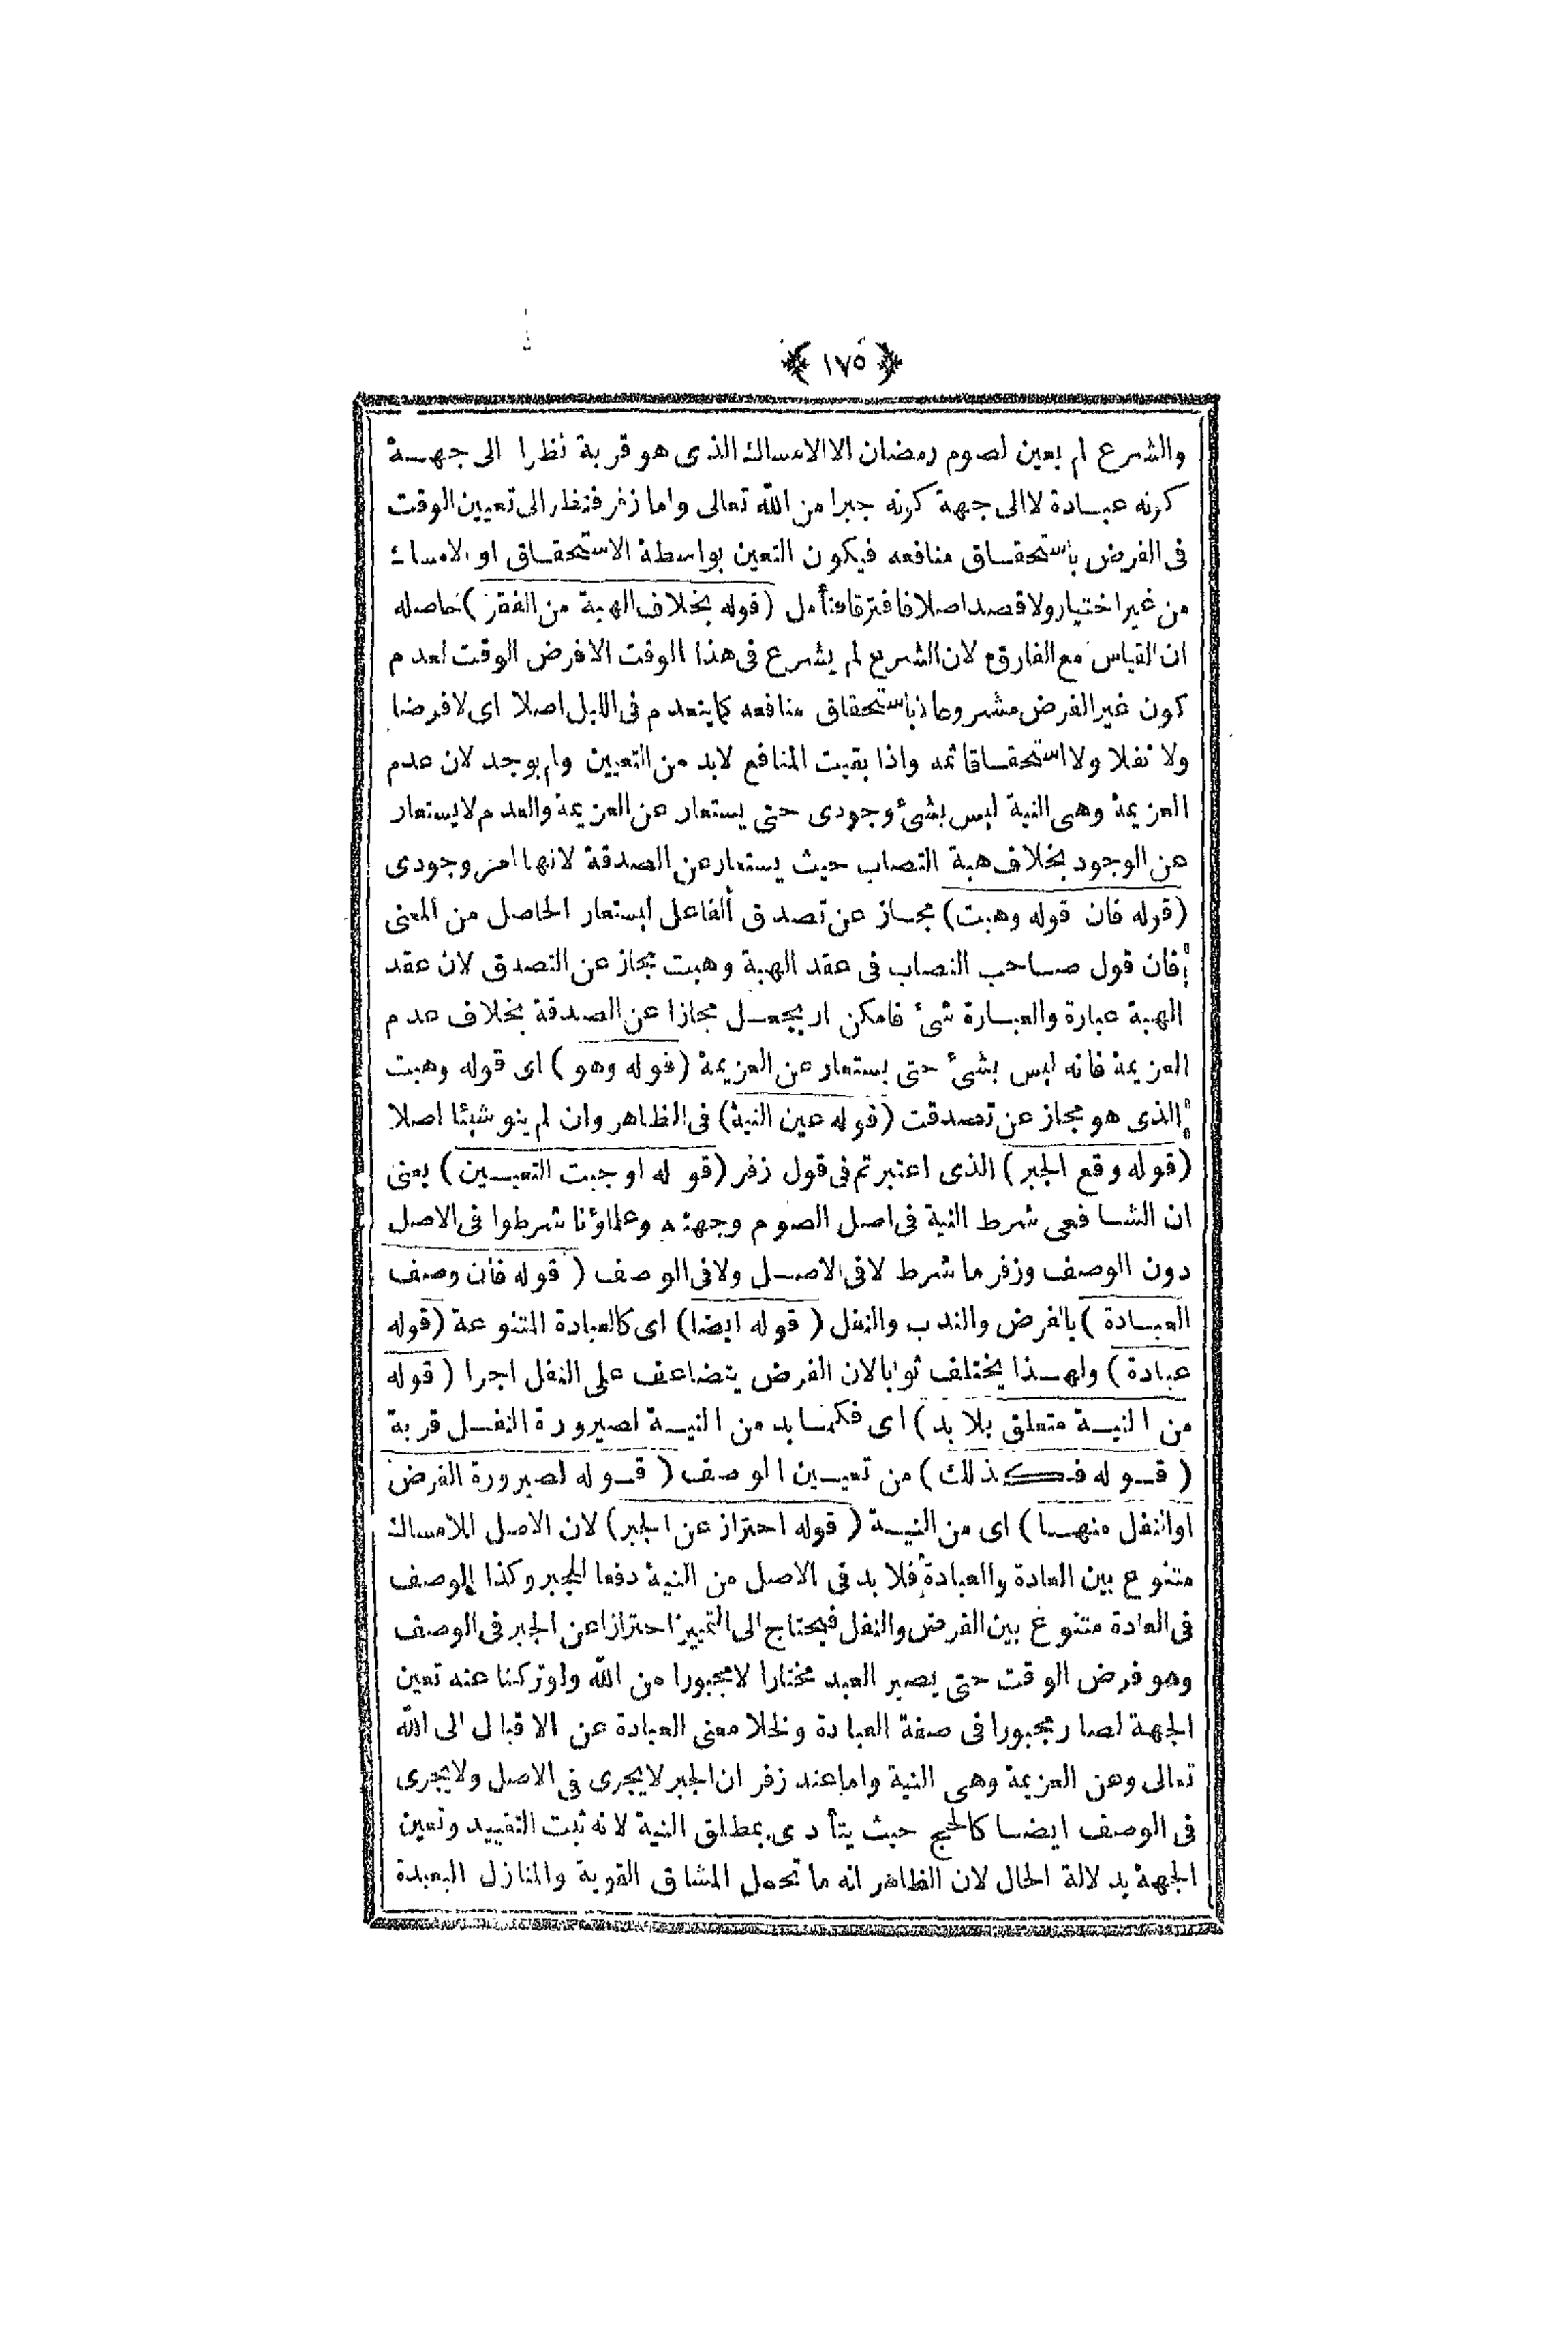 ﴿ ١٧٥ ﴾
والشرع لم يعين لصوم رمضان الا الامساك الذى هو قربة نظرا الى جهـة
كونه عبـادة لا الى جهة كونه جبرا من الله تعالى واما زفر فنظر الى تعيين الوقت
فى الفرض باستحقـاق منافعه فيكون التعين بواسطة الاستحقـاق او الامساك
من غير اختيار ولا قصد اصلا فافترقا فتأمل (قوله بخلاف الهبة من الفقر) حاصله
ان القياس مع الفارق لان الشرع لم يشرع فى هذا الوقت الا فرض الوقت لعدم
كون غير الفرض مشروعا باستحقاق منافعه كما ينعدم فى الليل اصلا اى لا فرضا
ولا نفلا ولا استحقـاقا ثمه واذا بقيت المنافع لابد من التعيين ولم يوجد لان عدم
العزيمة وهى النية ليس بشئ وجودى حتى يستعار عن العزيمة والعدم لا يستعار
عن الوجود بخلاف هبة النصاب حيث يستعار عن الصدقة لانها امر وجودى
(قوله فان قوله وهبت) مجـاز عن تصدق ألفاعل ليستعار الحاصل من المعنى
فان قول صـاحب النصاب فى عقد الهبة وهبت مجاز عن التصدق لان عقد
الهبة عبارة والعبـارة شئ فامكن ان يجعـل مجازا عن الصدقة بخلاف عدم
العزيمة فانه ليس بشئ حتى يستعار عن العزيمة (قوله وهو) اى قوله وهبت
الذى هو مجاز عن تصدقت (قوله عين النية) فى الظاهر وان لم ينو شيئا اصلا
(قوله وقع الجبر) الذى اعتبرتم فى قول زفر (قوله اوجبت التعيـين) يعنى
ان الشـافعى شرط النية فى اصل الصوم وجهته وعلماؤنا شرطوا فى الاصل
دون الوصف وزفر ما شرط لا فى الاصـل ولا فى الوصف (قوله فان وصف
العبـادة) بالفرض والندب والنفل (قوله ايضا) اى كالعبادة المتنوعة (قوله
عبادة) ولهـذا يختلف ثوابا لان الفرض يتضاعف على النفل اجرا (قوله
من النيـة متعلق بلا بد) اى فكمـا بد من النيـة لصيرورة النفـل قربة
(قـوله فـكذلك) من تعيـين الوصف (قـوله لصيرورة الفرض
او النفل منهـا) اى من النيـة (قوله احتراز عن الجبر) لان الاصل للامساك
متنوع بين العادة والعبادة فلا بد فى الاصل من النية دفعا للجبر وكذا الوصف
فى العادة متنوع بين الفرض والنفل فيحتاج الى التمييز احترازا عن الجبر فى الوصف
وهو فرض الوقت حتى يصير العبد مختارا لا مجبورا من الله ولو تركنا عنه تعين
الجهة لصار مجبورا فى صفة العبادة ولخلا معنى العبادة عن الاقبال الى الله
تعالى وعن العزيمة وهى النية واما عند زفر ان الجبر لا يجرى فى الاصل ولا يجرى
فى الوصف ايضـا كالحج حيث يتأدى بمطلق النية لانه ثبت التقييد وتعين
الجهة بدلالة الحال لان الظاهر انه ما تحمل المشاق القوية والمنازل البعيدة